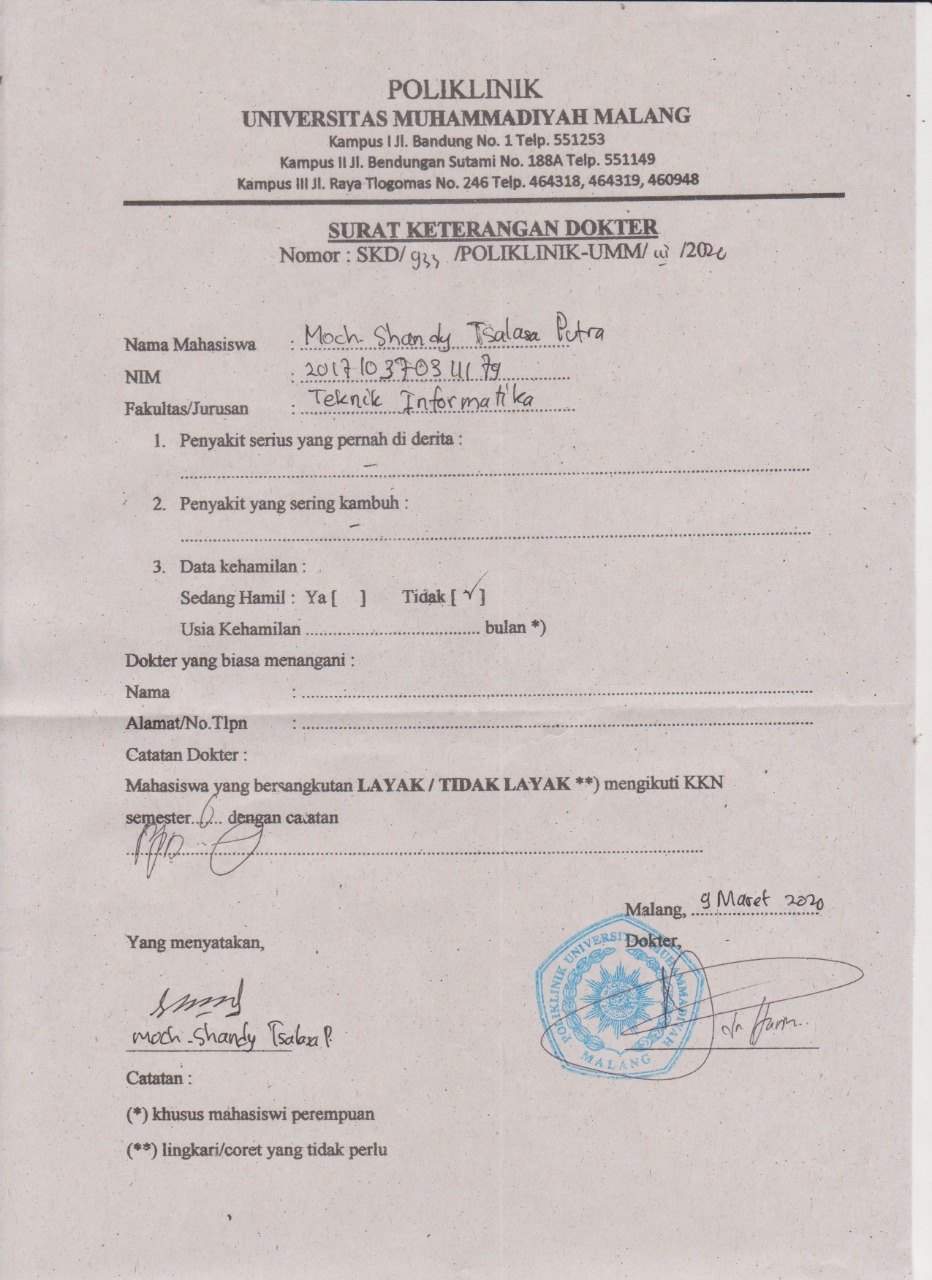 POLIKLINIK
UNIVERSITAS MUHAMMADIYAH MALANG
Kampus I Jl. Bandung No. 1 Telp. 551253
Kampus II Jl. Bendungan Sutami No. 188A Telp. 551149
Kampus III Jl. Raya Tlogomas No. 246 Telp. 464318, 464319, 460948
SURAT KETERANGAN DOKTER
Nomor : SKD/ 933 /POLIKLINIK-UMM/ III /2020
Nama Mahasiswa : Moch. Shandy Tsalasa Putra
NIM : 201710370311179
Fakultas/Jurusan : Teknik Informatika
1. Penyakit serius yang pernah di derita :
-
2. Penyakit yang sering kambuh :
-
3. Data kehamilan :
Sedang Hamil : Ya [ ] Tidak [ √ ]
Usia Kehamilan .................................. bulan *)
Dokter yang biasa menangani :
Nama :
Alamat/No.Tlpn :
Catatan Dokter :
Mahasiswa yang bersangkutan LAYAK / TIDAK LAYAK **) mengikuti KKN
semester..6... dengan catatan
Malang, 9 Maret 2020
Yang menyatakan,
Dokter,
POLIKLINIK UNIVERSITAS MUHAMMADIYAH
MALANG
Moch. Shandy Tsalasa P.
Catatan :
(*) khusus mahasiswi perempuan
(**) lingkari/coret yang tidak perlu